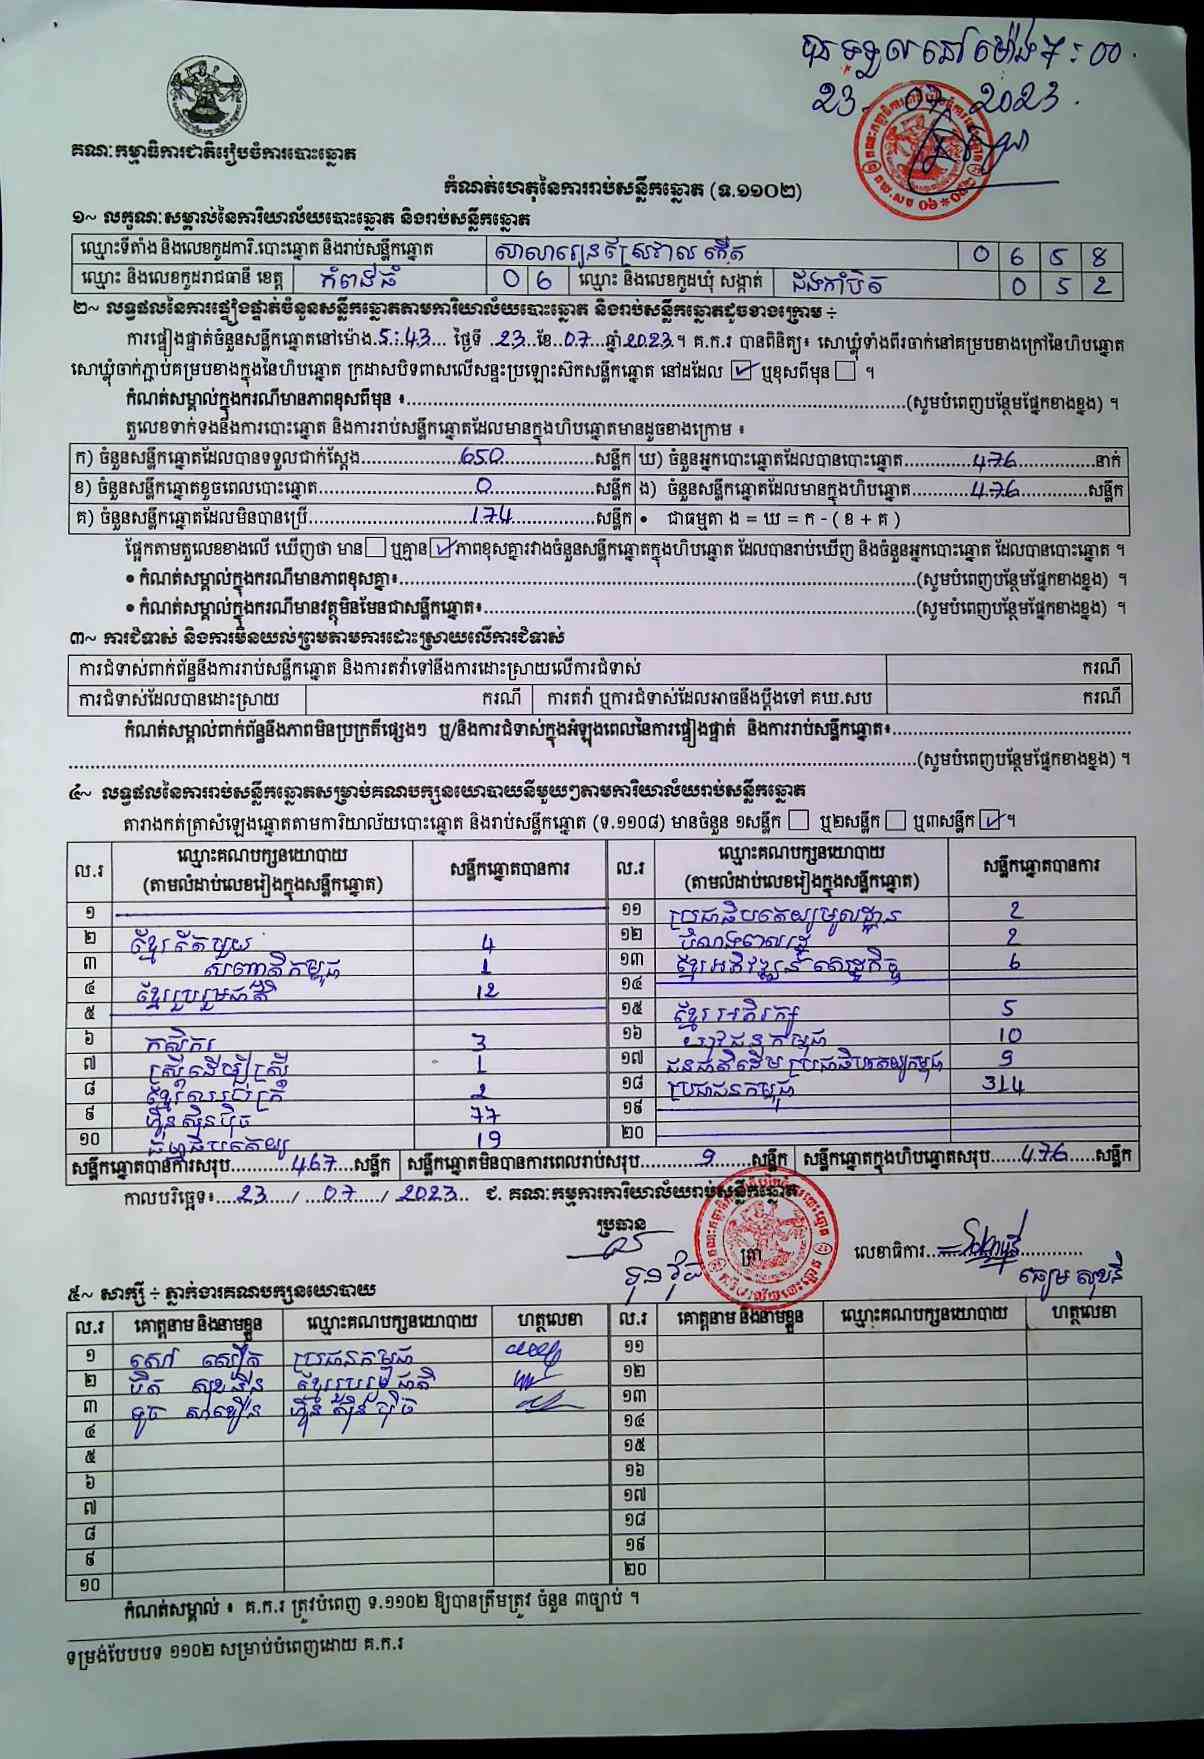 បានទទួលនៅម៉ោង ៧:00
23 - 07 - 2023
គណៈកម្មាធិការជាតិរៀបចំការបោះឆ្នោត
កំណត់ហេតុនៃការរាប់សន្លឹកឆ្នោត (ទ.១១០២)
១~ លក្ខណៈសម្គាល់នៃការិយាល័យបោះឆ្នោត និងរាប់សន្លឹកឆ្នោត
ឈ្មោះទីតាំង និងលេខកូដការិ.បោះឆ្នោត និងរាប់សន្លឹកឆ្នោត សាលារៀនស្រែវាល កើត 0 6 5 8
ឈ្មោះ និងលេខកូដរាជធានី ខេត្ត កំពង់ធំ 0 6 ឈ្មោះ និងលេខកូដឃុំ សង្កាត់ ដងកាំបិត 0 5 2
២~ លទ្ធផលនៃការផ្ទៀងផ្ទាត់ចំនួនសន្លឹកឆ្នោតតាមការិយាល័យបោះឆ្នោត និងរាប់សន្លឹកឆ្នោតដូចខាងក្រោម ÷
ការផ្ទៀងផ្ទាត់ចំនួនសន្លឹកឆ្នោតនៅម៉ោង.5:43... ថ្ងៃទី ..23..ខែ..07...ឆ្នាំ2023.។ គ.ក.រ បានពិនិត្យ៖ សោឃ្លុំទាំងពីរចាក់នៅគម្របខាងក្រៅនៃហិបឆ្នោត
សោឃ្លុំចាក់ភ្ជាប់គម្របខាងក្នុងនៃហិបឆ្នោត ក្រដាសបិទពាសលើសន្ទះប្រឡោះស៊កសន្លឹកឆ្នោត នៅដដែល ☑ ឬខុសពីមុន ☐ ។
កំណត់សម្គាល់ក្នុងករណីមានភាពខុសពីមុន ៖..........(សូមបំពេញបន្ថែមផ្នែកខាងខ្នង) ។
តួលេខទាក់ទងនឹងការបោះឆ្នោត និងការរាប់សន្លឹកឆ្នោតដែលមានក្នុងហិបឆ្នោតមានដូចខាងក្រោម ៖
ក) ចំនួនសន្លឹកឆ្នោតដែលបានទទួលជាក់ស្តែង......650......សន្លឹក ឃ) ចំនួនអ្នកបោះឆ្នោតដែលបានបោះឆ្នោត......476......នាក់
ខ) ចំនួនសន្លឹកឆ្នោតខូចពេលបោះឆ្នោត......0......សន្លឹក ង) ចំនួនសន្លឹកឆ្នោតដែលមានក្នុងហិបឆ្នោត......476......សន្លឹក
គ) ចំនួនសន្លឹកឆ្នោតដែលមិនបានប្រើ......174......សន្លឹក • ជាធម្មតា ង = ឃ = ក - ( ខ + គ )
ផ្អែកតាមតួលេខខាងលើ ឃើញថា មាន ☐ ឬគ្មាន ☑ ភាពខុសគ្នារវាងចំនួនសន្លឹកឆ្នោតក្នុងហិបឆ្នោត ដែលបានរាប់ឃើញ និងចំនួនអ្នកបោះឆ្នោត ដែលបានបោះឆ្នោត ។
• កំណត់សម្គាល់ក្នុងករណីមានភាពខុសគ្នា៖..........(សូមបំពេញបន្ថែមផ្នែកខាងខ្នង) ។
• កំណត់សម្គាល់ក្នុងករណីមានវត្ថុមិនមែនជាសន្លឹកឆ្នោត៖..........(សូមបំពេញបន្ថែមផ្នែកខាងខ្នង) ។
៣~ ការជំទាស់ និងការមិនយល់ព្រមតាមការដោះស្រាយលើការជំទាស់
ការជំទាស់ពាក់ព័ន្ធនឹងការរាប់សន្លឹកឆ្នោត និងការតវ៉ាទៅនឹងការដោះស្រាយលើការជំទាស់ ករណី
ការជំទាស់ដែលបានដោះស្រាយ ករណី ការតវ៉ា ឬការជំទាស់ដែលអាចនឹងប្តឹងទៅ គឃ.សប ករណី
កំណត់សម្គាល់ពាក់ព័ន្ធនឹងភាពមិនប្រក្រតីផ្សេងៗ ឬ/និងការជំទាស់ក្នុងអំឡុងពេលនៃការផ្ទៀងផ្ទាត់ និងការរាប់សន្លឹកឆ្នោត៖..........
..........(សូមបំពេញបន្ថែមផ្នែកខាងខ្នង) ។
៤~ លទ្ធផលនៃការរាប់សន្លឹកឆ្នោតសម្រាប់គណបក្សនយោបាយនីមួយៗតាមការិយាល័យរាប់សន្លឹកឆ្នោត
តារាងកត់ត្រាសំឡេងឆ្នោតតាមការិយាល័យបោះឆ្នោត និងរាប់សន្លឹកឆ្នោត (ទ.១១០៨) មានចំនួន ១សន្លឹក ☐ ឬ២សន្លឹក ☐ ឬ៣សន្លឹក ☑ ។
ល.រ ឈ្មោះគណបក្សនយោបាយ (តាមលំដាប់លេខរៀងក្នុងសន្លឹកឆ្នោត) សន្លឹកឆ្នោតបានការ ល.រ ឈ្មោះគណបក្សនយោបាយ (តាមលំដាប់លេខរៀងក្នុងសន្លឹកឆ្នោត) សន្លឹកឆ្នោតបានការ
១ ១១ ប្រជាធិបតេយ្យមូលដ្ឋាន 2
២ ខ្មែរតែមួយ 4 ១២ បំណងពលរដ្ឋ 2
៣ សញ្ជាតិកម្ពុជា 1 ១៣ ខ្មែរអភិវឌ្ឍន៍ សេដ្ឋកិច្ច 6
៤ ខ្មែររួបរួមជាតិ 12 ១៤
៥ ១៥ ខ្មែរអភិរក្ស 5
៦ កសិករ 3 ១៦ យុវជនកម្ពុជា 10
៧ ស្ត្រីដើម្បីស្ត្រី 1 ១៧ ជនជាតិដើម ប្រជាធិបតេយ្យកម្ពុជា 9
៨ ខ្មែរឈប់ក្រ 2 ១៨ ប្រជាជនកម្ពុជា 314
៩ ហ៊្វុនស៊ិនប៉ិច 77 ១៩
១០ ធម្មាធិបតេយ្យ 19 ២០
សន្លឹកឆ្នោតបានការសរុប......467...សន្លឹក សន្លឹកឆ្នោតមិនបានការពេលរាប់សរុប......9......សន្លឹក សន្លឹកឆ្នោតក្នុងហិបឆ្នោតសរុប......476.....សន្លឹក
កាលបរិច្ឆេទ៖....23...../ ....07...../ ..2023... ជ. គណៈកម្មការការិយាល័យរាប់សន្លឹកឆ្នោត
ប្រធាន ត្រា លេខាធិការ..........
៥~ សាក្សី ÷ ភ្នាក់ងារគណបក្សនយោបាយ
ល.រ គោត្តនាម និងនាមខ្លួន ឈ្មោះគណបក្សនយោបាយ ហត្ថលេខា ល.រ គោត្តនាម និងនាមខ្លួន ឈ្មោះគណបក្សនយោបាយ ហត្ថលេខា
១ សៅ សឿត ប្រជាជនកម្ពុជា ១១
២ ប៉ិត សុខជឿន ខ្មែររួបរួមជាតិ ១២
៣ ទូច សាខឿន ហ៊្វុន ស៊ិន ប៉ិច ១៣
៤ ១៤
៥ ១៥
៦ ១៦
៧ ១៧
៨ ១៨
៩ ១៩
១០ ២០
កំណត់សម្គាល់ ៖ គ.ក.រ ត្រូវបំពេញ ទ.១១០២ ឱ្យបានត្រឹមត្រូវ ចំនួន ៣ច្បាប់ ។
ទម្រង់បែបបទ ១១០២ សម្រាប់បំពេញដោយ គ.ក.រ